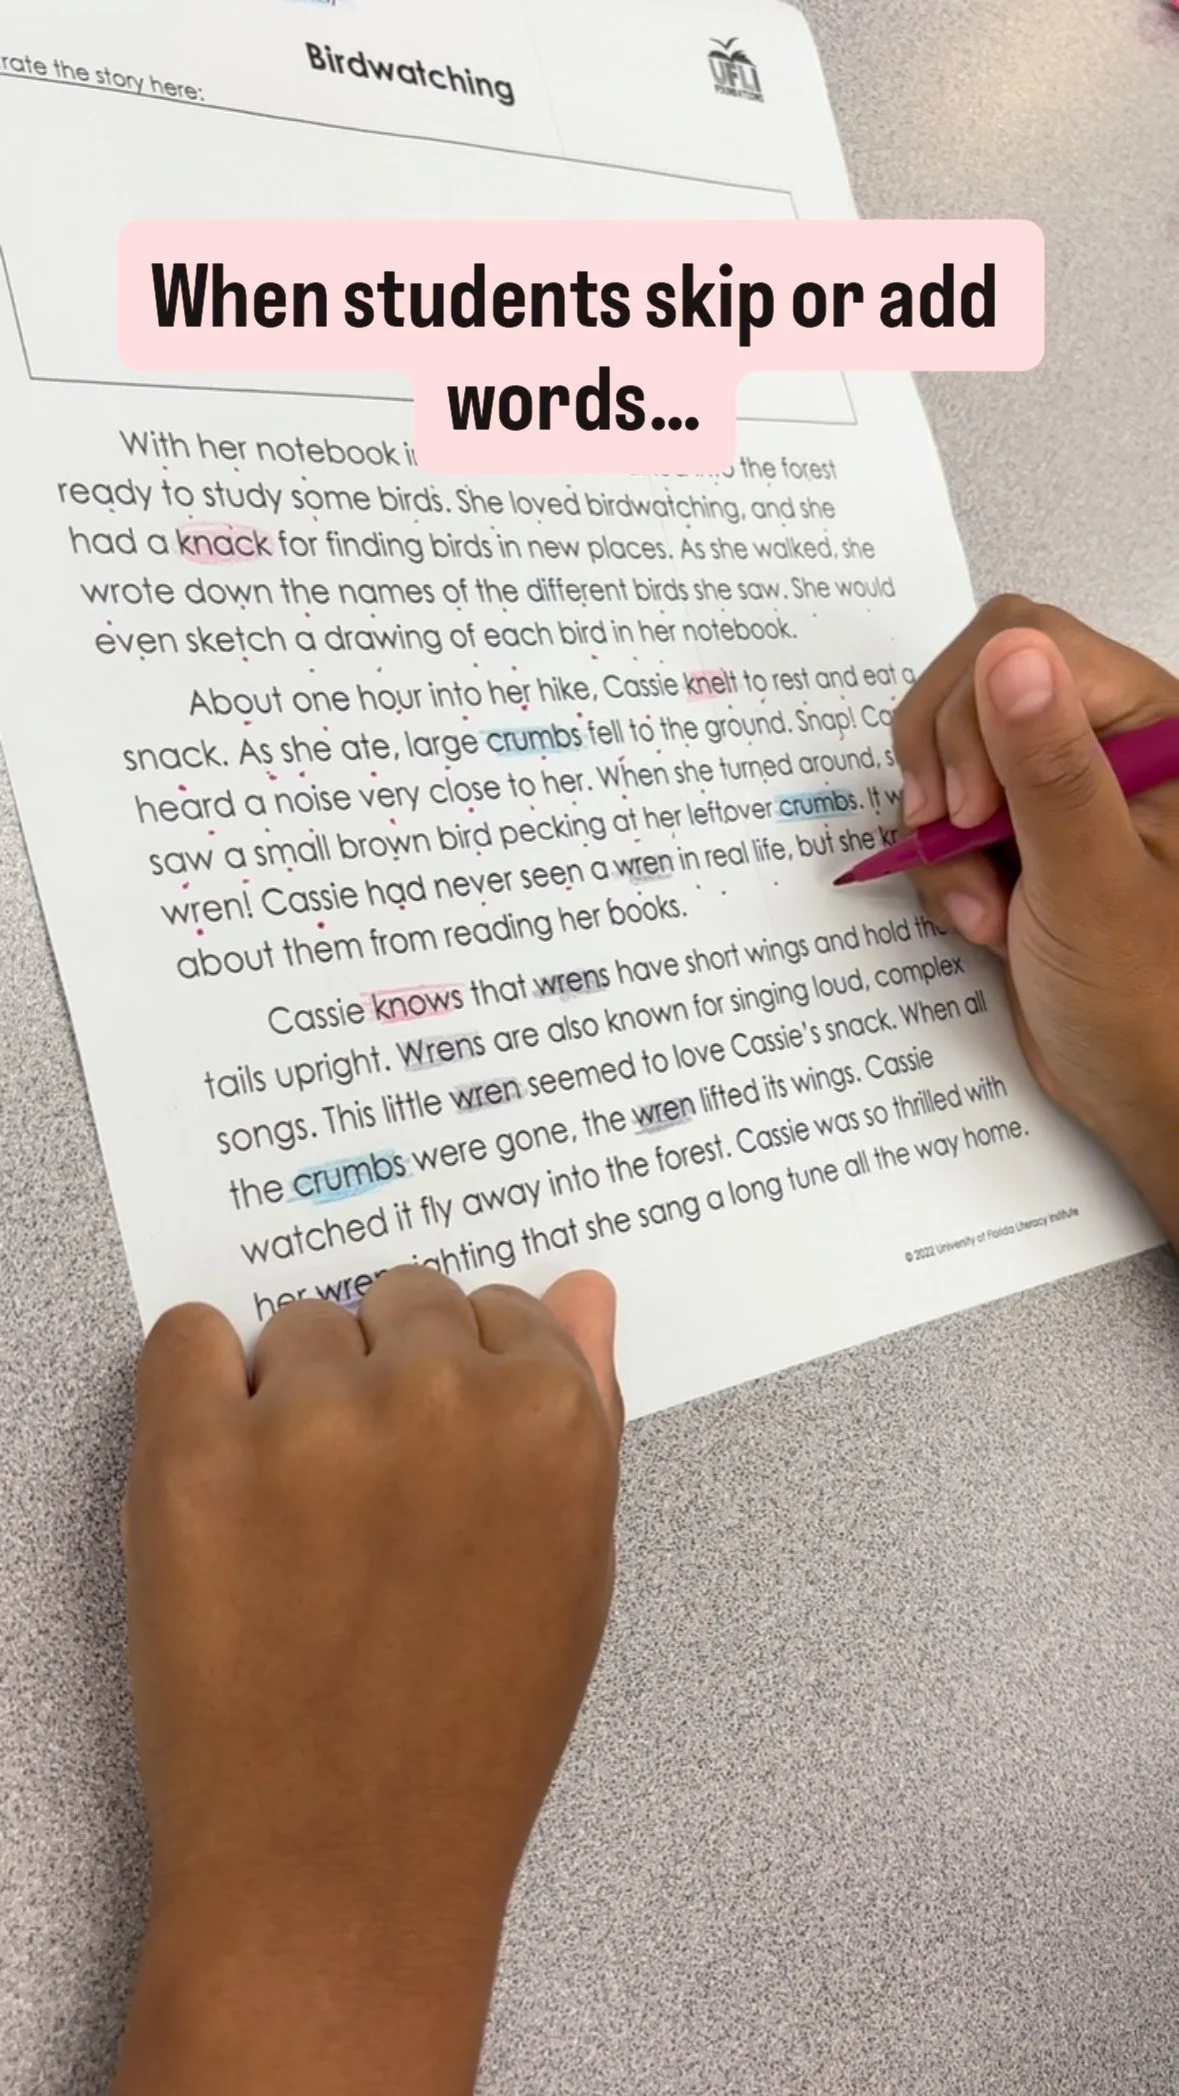 Birdwatching
UFLI
FOUNDATIONS
the story here:
When students skip or add
words...
With her notebook
the forest
ready to study some birds. She loved birdwatching, and she
had a knack for finding birds in new places. As she walked, she
wrote down the names of the different birds she saw. She would
even sketch a drawing of each bird in her notebook.
About one hour into her hike, Cassie knelt to rest and eat a
snack. As she ate, large crumbs fell to the ground. Snap!
heard a noise very close to her. When she turned around,
saw a small brown bird pecking at her leftover crumbs. It
wren! Cassie had never seen a wren in real life, but she
about them from reading her books.
Cassie knows that wrens have short wings and hold
tails upright. Wrens are also known for singing loud, complex
songs. This little wren seemed to love Cassie's snack. When all
the crumbs were gone, the wren lifted its wings. Cassie
watched it fly away into the forest. Cassie was so thrilled with
her that she sang a long tune all the way home.
© 2022 University of Florida Literacy Institute